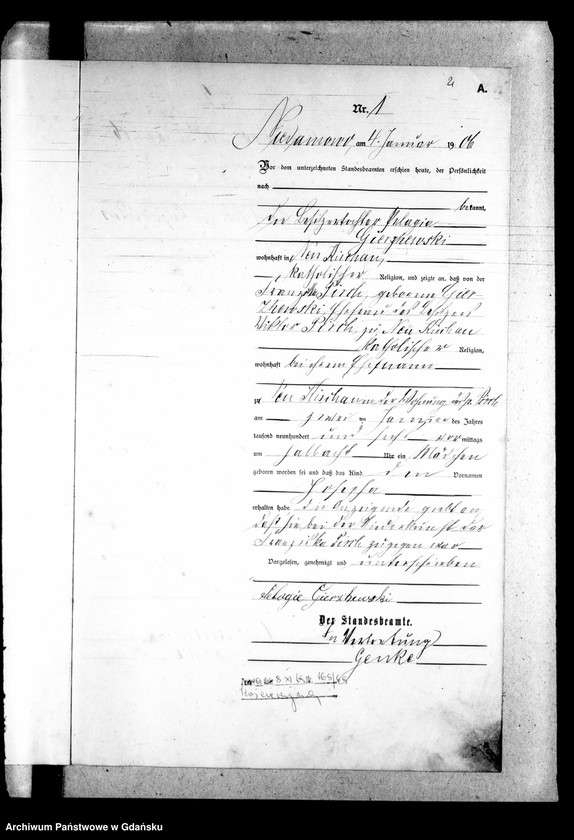 2
A.
Nr. 1
am 4. Januar 1906
Vor dem unterzeichneten Standesbeamten erschien heute, der Persönlichkeit
nach
bekannt,
die Besitzertochter Pelagia
Gierszewski
wohnhaft in Neu Kischau,
katholischer Religion, und zeigte an, daß von der
Franziska Pirch, geborene Gier-
szewski, Ehefrau des Besitzers
Viktor Pirch, zu Neu Kischau
katholischer Religion,
wohnhaft bei ihrem Ehemann
zu Neu Kischau in der Wohnung des Pirch
am zwei ten Januar des Jahres
tausend neunhundert und sechs vor mittags
um halbacht Uhr ein Mädchen
geboren worden sei und daß das Kind den Vornamen
Josepha
erhalten habe. Die Anzeigende gibt an,
daß sie bei der Niederkunft der
Franziska Pirch zugegen war
Vorgelesen, genehmigt und unterschrieben
Pelagie Gierszewski
Der Standesbeamte.
In Vertretung
Genke
8 XI 165/69
Archiwum Państwowe w Gdańsku